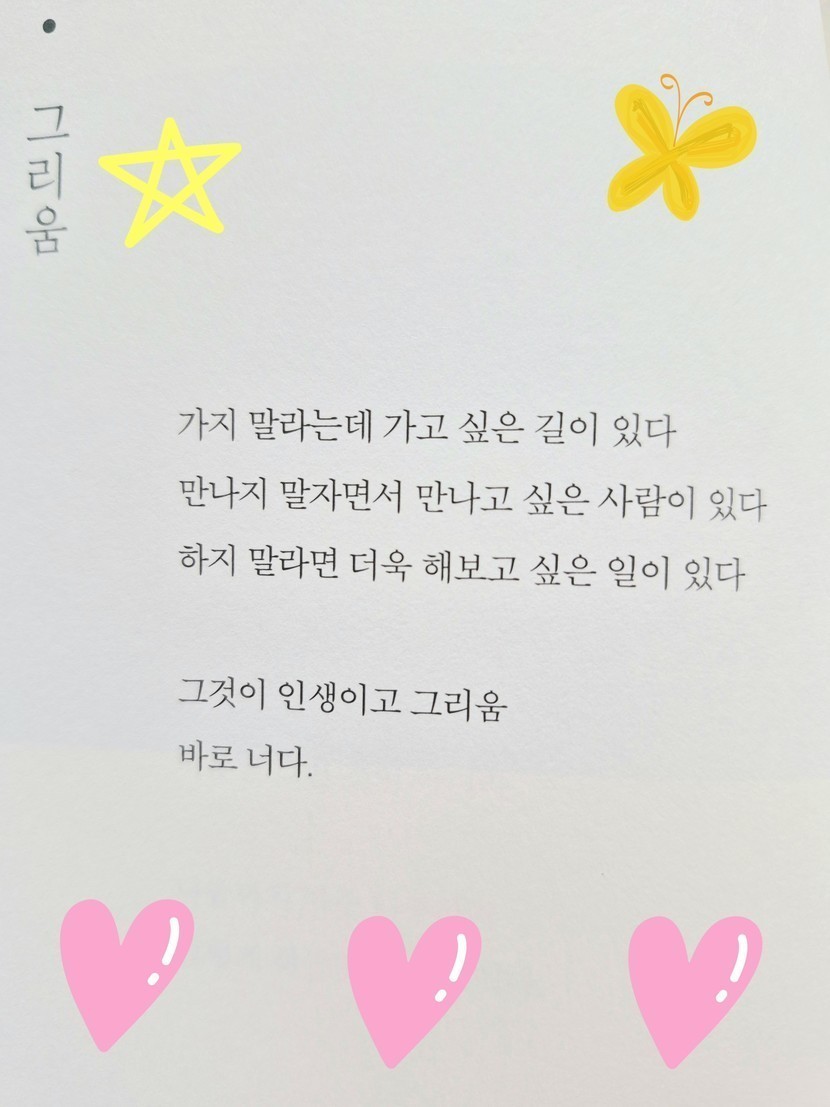 그리움
가지 말라는데 가고 싶은 길이 있다
만나지 말자면서 만나고 싶은 사람이 있다
하지 말라면 더욱 해보고 싶은 일이 있다
그것이 인생이고 그리움
바로 너다.